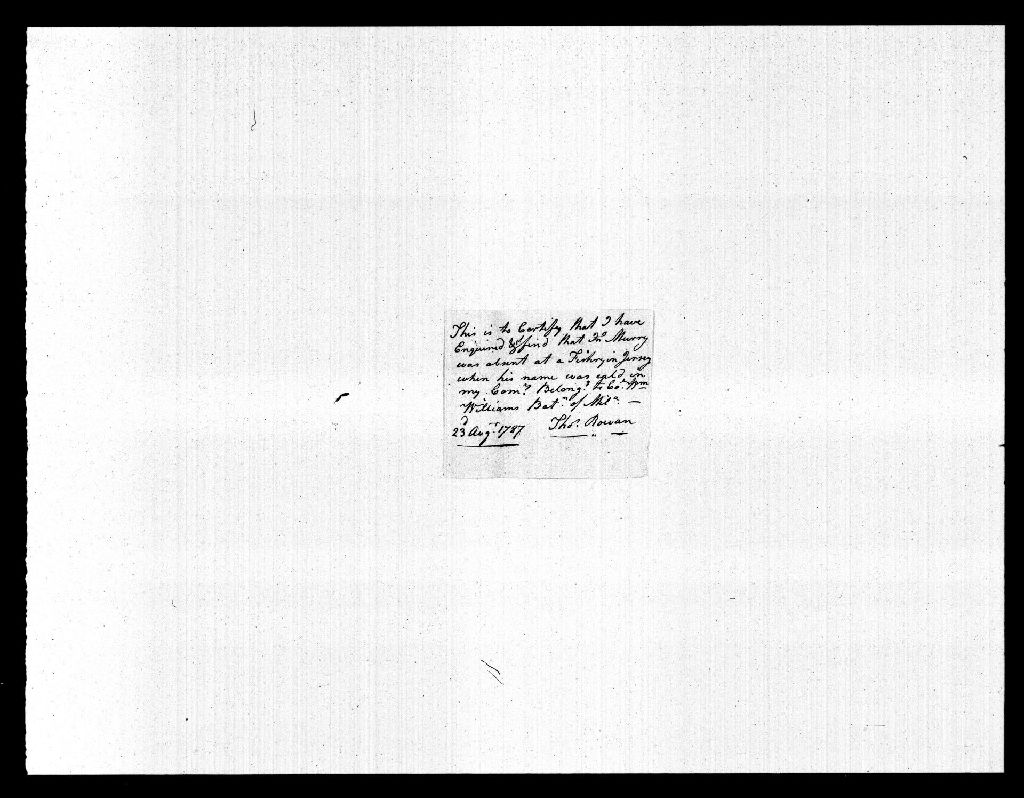 This is to Certify that I have
Enquired & find that Jno Murry
was absent at a Fishry in Jersey
when his name was cald in
my Comy Belongg to Col Wm
Williams Batn of Mila —
23d Augt 1787 Thos Rowan